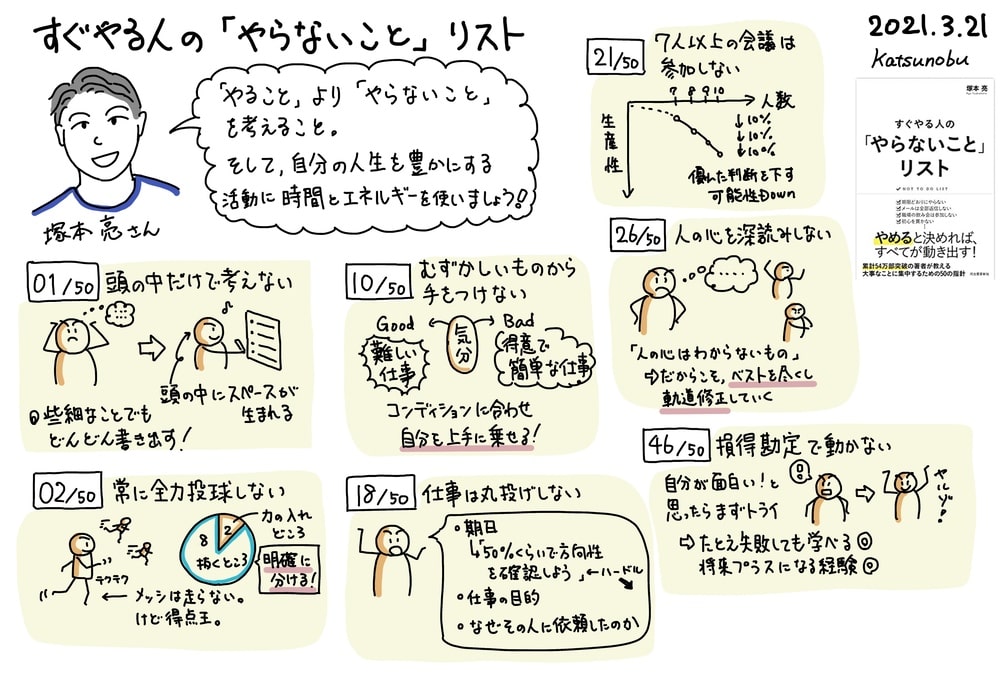 すぐやる人の「やらないこと」リスト
2021.3.21
Katsunobu
「やること」より「やらないこと」
を考えること。
そして、自分の人生を豊かにする
活動に時間とエネルギーを使いましょう!
塚本亮さん
塚本 亮
すぐやる人の
「やらないこと」
リスト
NOT TO DO LIST
期限どおりにやらない
メールは全部返信しない
職場の飲み会は参加しない
初心を貫かない
やめると決めれば、
すべてが動き出す!
累計54万部突破の著者が教える
大事なことに集中するための50の指針
河出書房新社
01/50 頭の中だけで考えない
頭の中にスペースが
生まれる
些細なことでも
どんどん書き出す!
02/50 常に全力投球しない
8
2
力の入れ
どころ
抜くところ
明確に
分ける!
テクテク
←メッシは走らない。
けど得点王。
10/50 むずかしいものから
手をつけない
Good
気分
Bad
難しい
仕事
得意で
簡単な仕事
コンディションに合わせ
自分を上手に乗せる!
18/50 仕事は丸投げしない
・期日
↳「50%くらいで方向性
を確認しよう」←ハードル↘
・仕事の目的
・なぜその人に依頼したのか
21/50 7人以上の会議は
参加しない
7 8 9 10
人数
生産性
↓10%
↓10%
↓10%
優れた判断を下す
可能性もDown
26/50 人の心を深読みしない
「人の心はわからないもの」
⇨だからこそ、ベストを尽くし
軌道修正していく
46/50 損得勘定で動かない
自分が面白い!と
思ったらまずトライ
ヤルゾ!
⇨たとえ失敗しても学べる
将来プラスになる経験